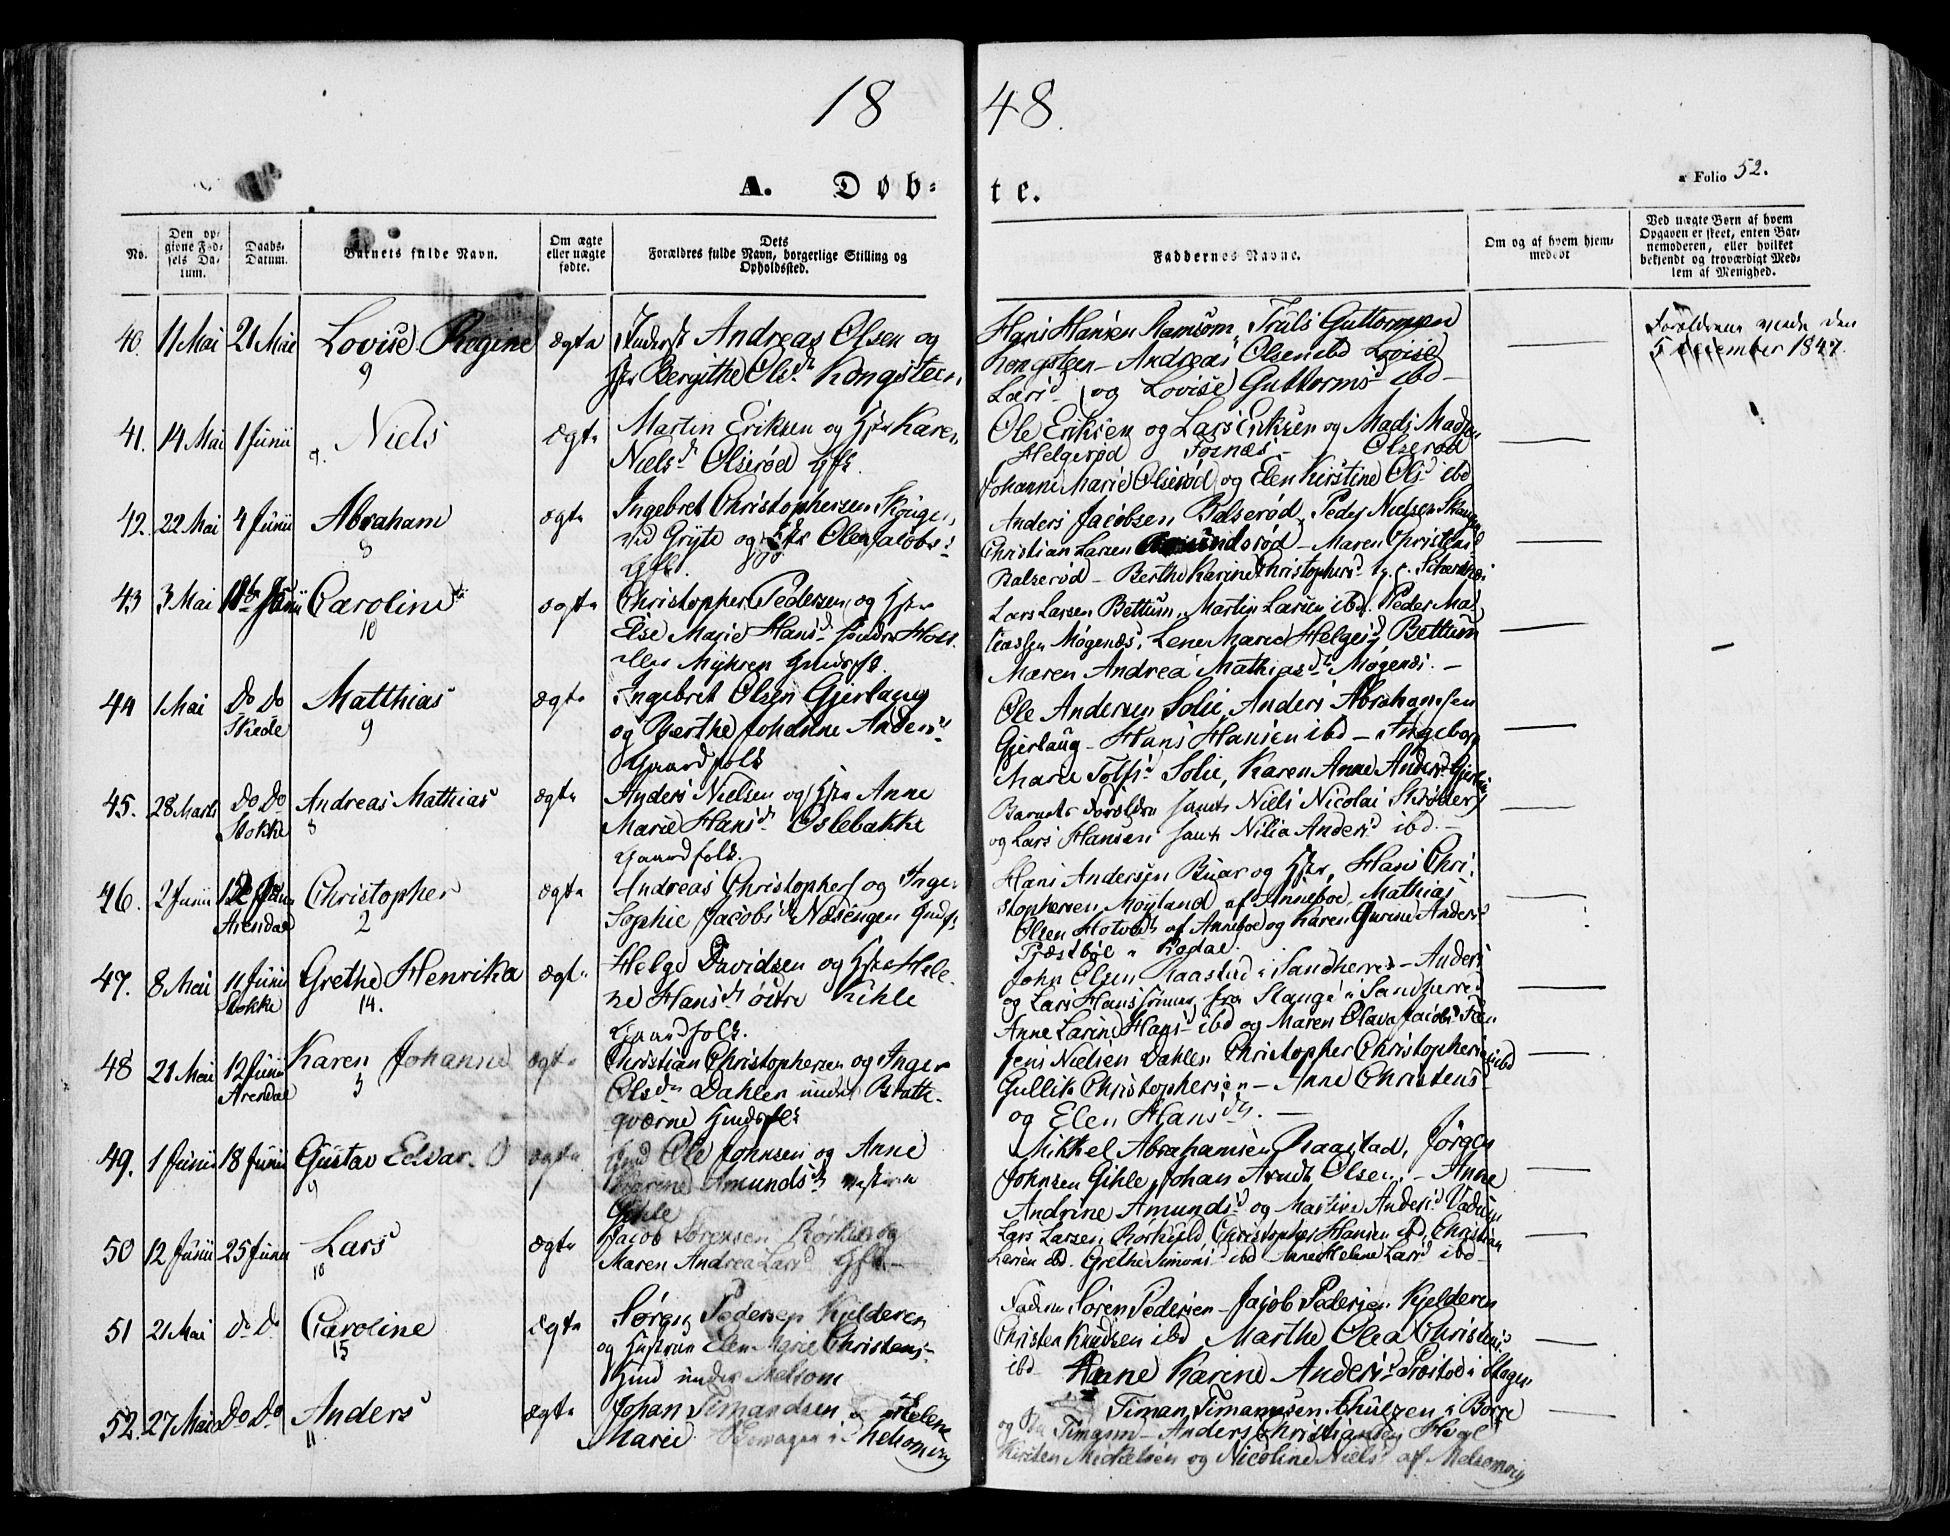 18 48.
A. Døb-te.
a Folio 52.
No.
Den op-
givne Fød-
sels Da-
tum.
Daabs-
Datum.
Barnets fulde Navn.
Om ægte
eller uægte
fødte.
Dets
Forældres fulde Navn, borgerlige Stilling og
Opholdssted.
Faddernes Navne.
Om og af hvem hjem-
medøbt
Ved uægte Børn af hvem
Opgaven er skeet, enten Bar-
nemoderen, eller hvilket
bekjendt og troværdigt Med-
lem af Menighed.
40. 11 Mai 21 Mai Lovise Regine ægte
9
Andreas Olsen og
Bergithe Olsd. Kongsteen.
Hans Hansen Ramsom, Truls Guttormsen
Kongsteen - Andreas Olsen ibd Lovise
Larsd og Lovise Guttormsd ibd -
5 december 1847.
41. 14 Mai 1 Junii Niels ægte
Martin Eriksen og Hstr Karen
Nielsd Olserød Gfk.
Ole Eriksen og Lars Eriksen og Mads Madsen
Helgerød Fosnæs - Olserød
Johanne Marie Olserød og Elen Kirstine Olsd ibd
42. 22 Mai 4 Junii Abraham ægte
Ingebret Christophersen
og Olea Jacobsd
Gfk.
Anders Jacobsen Balserød, Peder Nielsen
Christian Larsen - Maren Christensd
Balserød - Berthe Karine Christophersd
43 3 Mai Junii Caroline ægte
10
Christopher Pedersen og Hstr
Else Marie Hansd
Myhren
Lars Larsen Bettum, Martin Larsen ibd. Peder Ma-
thiassen Møgenæs, Lene Marie Helgesd Bettum
Maren Andrea Mathiasd. Møgenæs. -
44 1 Mai Do Do Matthias ægte
Skiede
9
Ingebret Olsen Gjerlaug
og Berthe Johanne Andersd
Gaardfolk
Ole Andersen Solie, Anders Abrahamsen
Gjerlaug - Hans Hansen ibd - Ingeborg
Marie Tolfsd Solie, Karen Anne Andersd
45. 28 Marts Do Do Andreas Mathias ægte
Stokke
Anders Nielsen og Hstr Anne
Marie Hansd. Oslebakke
Gaardfolk.
Barnets Forældre samt Niels Nicolai
og Lars Hansen samt Nilia Andersd ibd. -
46. 2 Junii Christopher ægte
Arendal
2
Andreas Christophers og Inger
Sophie Jacobsd Næsengen
Hans Andersen Buar og Hstr, Hans Chri-
stophersen Møyland af Anneboe, Mathias
Olsen af Anneboe og Karen Gurine Andersd
Præstbøe i Ragdal.
47. 8 Mai 11 Junii Grethe Henrika ægte
Stokke
14.
Helge Davidsen og Hstr Hele-
ne Hansd østre Gihle
Gaardfolk.
John Olsen Raastad i Sandherred - Anders
og Lars Hans sønner fra Stange i Sandherred
Anne Larine Hansd ibd og Maren Olava Jacobsd
48 21 Mai 12 Junii Karen Johanne ægte
Arendal
3
Christian Christophersen og Inger
Olsd. Dahlen under Bratte-
qværne
Jens Nielsen Dahlen Christopher Christophersen ibd
Gullik Christophersen - Anne Christensd
og Elen Hansd. -
49. 1 Junii 18 Junii Gustav Edvard ægte
9
Ole Johnsen og Anne
Karine Amundsd vestre
Gihle
Mikkel Abrahamsen Raastad, Jørgen
Johnsen Gihle, Johan Arndt Olsen - Anne
Andrine Amundsd og Martine Andersd
50 12 Junii 25 Junii Lars ægte
10
Jacob Sørensen og
Maren Andrea Larsd Gfk -
Lars Larsen Christopher Hansen ibd, Christian
Larsen ibd. Grethe Simonsd ibd Anne Helene Larsd ibd -
51 21 Mai Do Do Caroline ægte
15
Jørgen Pedersen Kjelderen
og Hustrue Elen Marie Christensd
Huud under Melsom
Faderen Søren Pedersen - Jacob Pedersen Kjelderen
Christen Knudsen ibd Marthe Olea Christensd
ibd - Anne Karine Andersd
52. 27 Mai Do Do Anders ægte
11
Johan Timandsen og Helene
Marie
Timan Timansen i Borre
Timann - Anders Christiansen
Kirsten Mickelsen og Nicoline Nielsd af Melsomvig